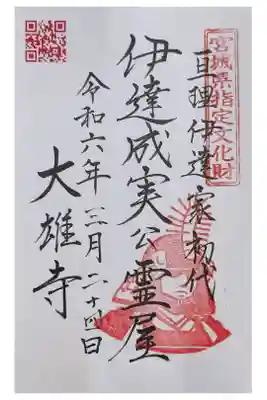 宮城県指定文化財
亘理伊達家初代
伊達成実公霊屋
令和六年三月二十四日
大雄寺